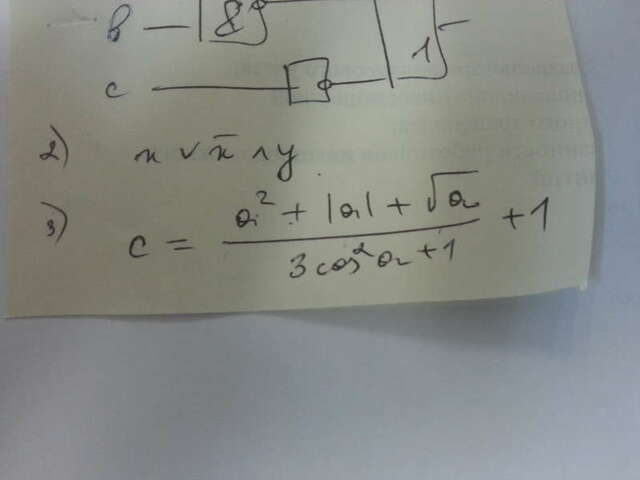 в &
1
с
2) x ∨ x̅ ∧ y
3) c = (a² + |a| + √a) / (3cos²a + 1) + 1